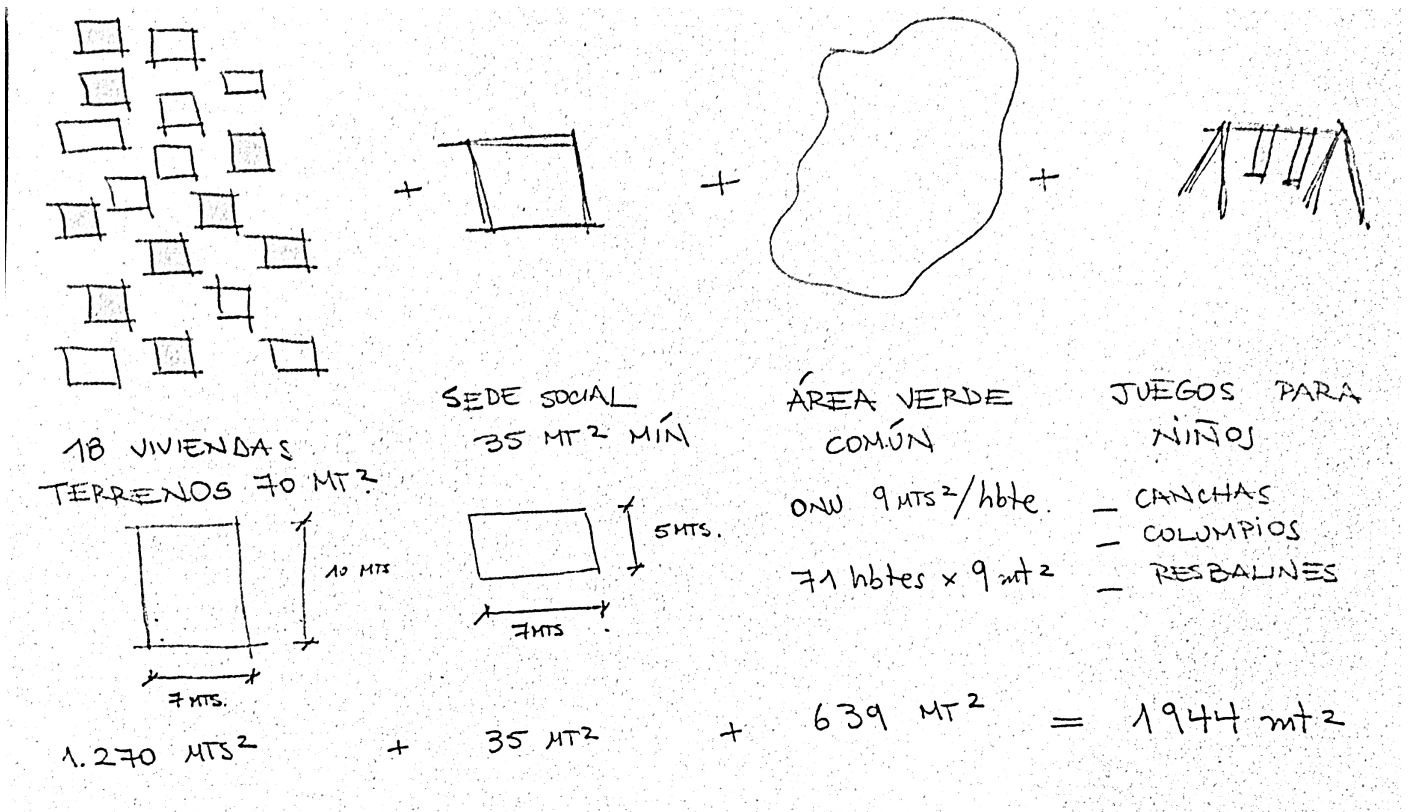 + + +
18 VIVIENDAS
TERRENOS 70 MT²
10 MTS
7 MTS.
SEDE SOCIAL
35 MT² MÍN
5 MTS.
7 MTS
ÁREA VERDE
COMÚN
ONU 9 MTS²/hbte.
71 hbtes x 9 mt²
JUEGOS PARA
NIÑOS
_ CANCHAS
_ COLUMPIOS
_ RESBALINES
1.270 MTS² + 35 MT² + 639 MT² = 1944 mt²